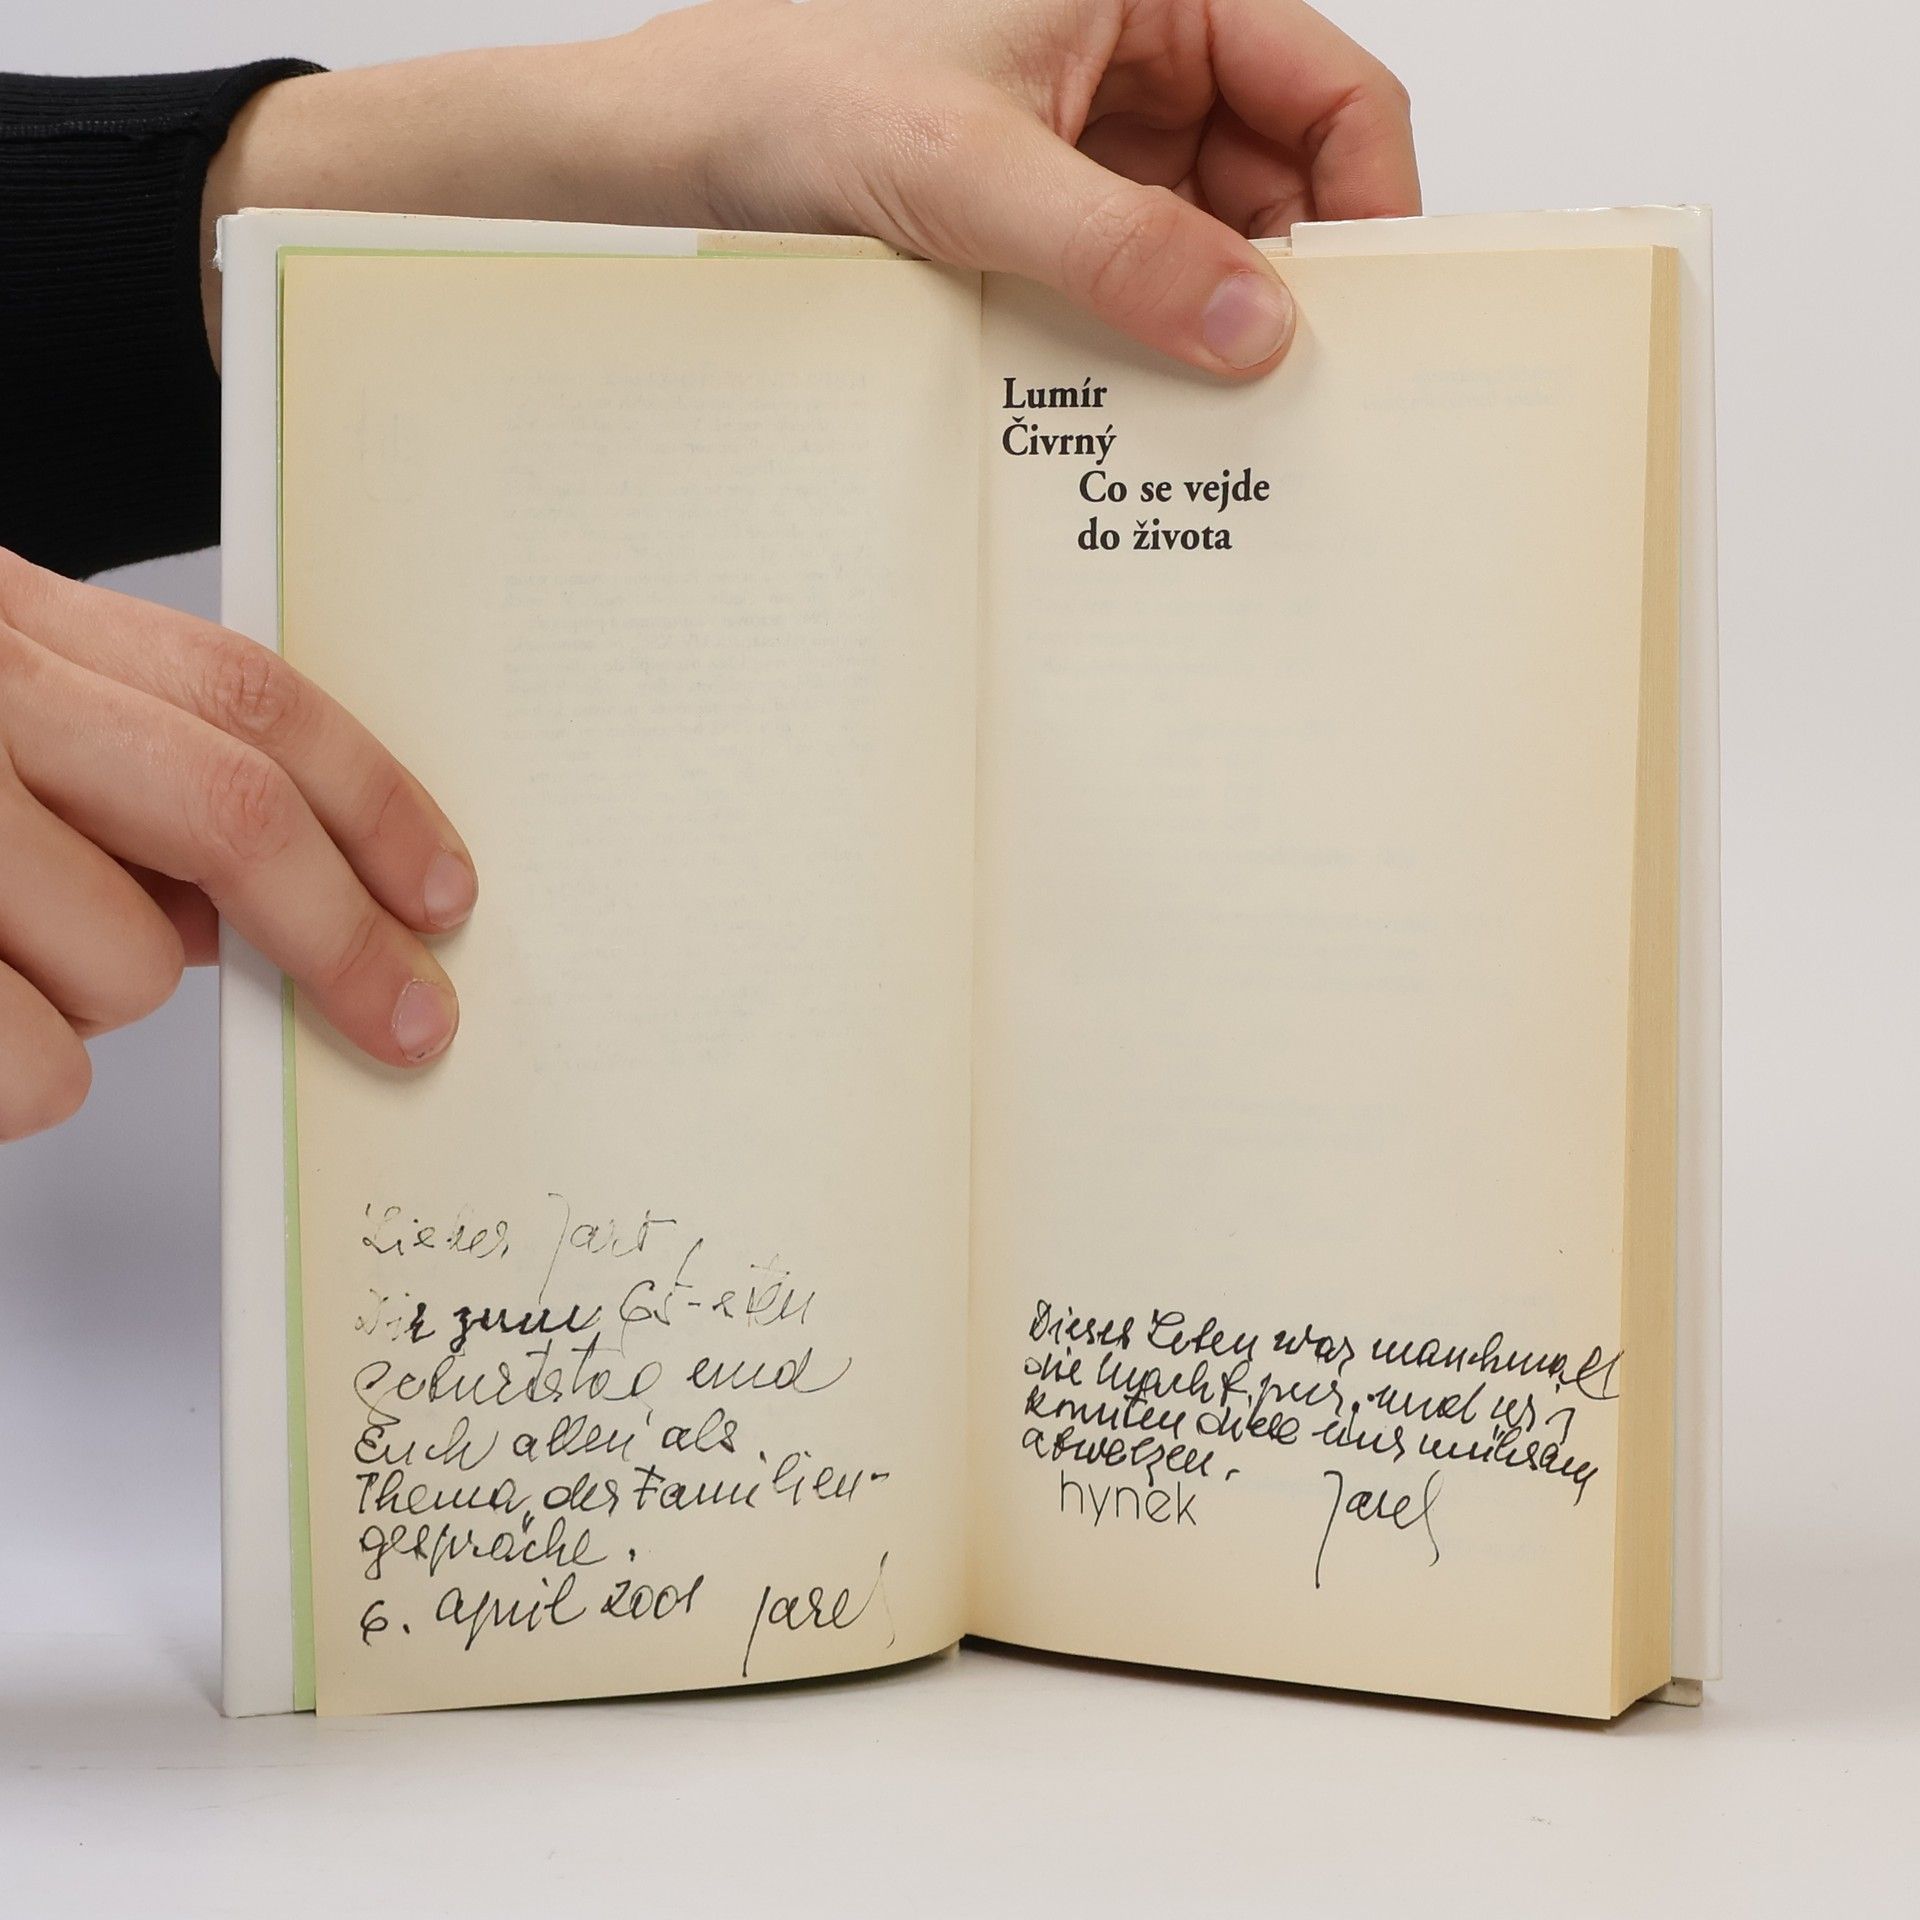 Lieber Jart,
Dir zum 65-sten
Geburtstag und
Euch allen als
Thema der Familien-
gespräche.
6. April 2001 Jarel
Lumír
Čivrný
Co se vejde
do života
Dieses Leben war manchmal
die und wir
konnten uns mühsam
abwetzen.
hynek Jarel